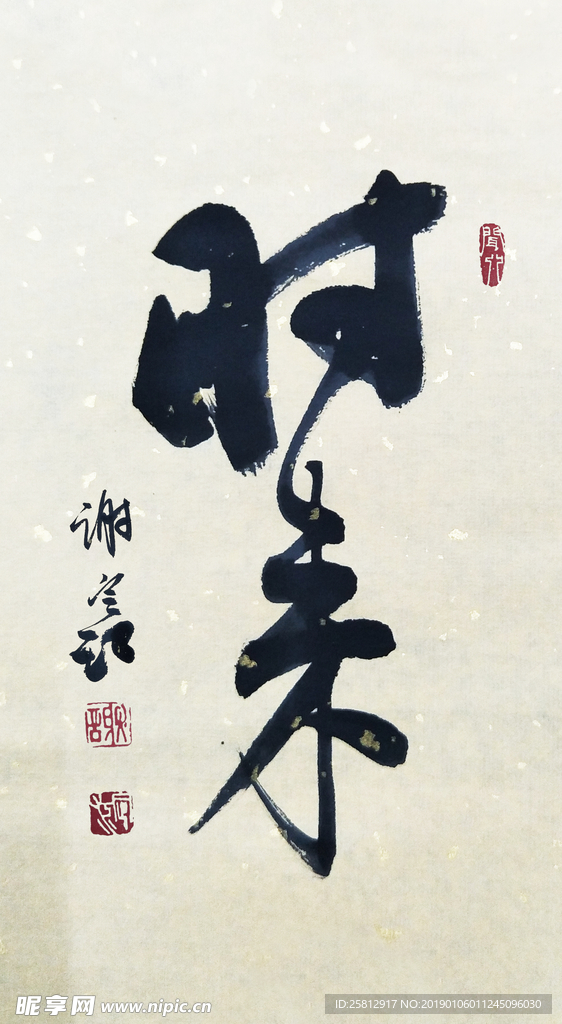 时来
闻
谢
谢
昵享网 www.nipic.cn
ID:25812917 NO:20190106011245096030